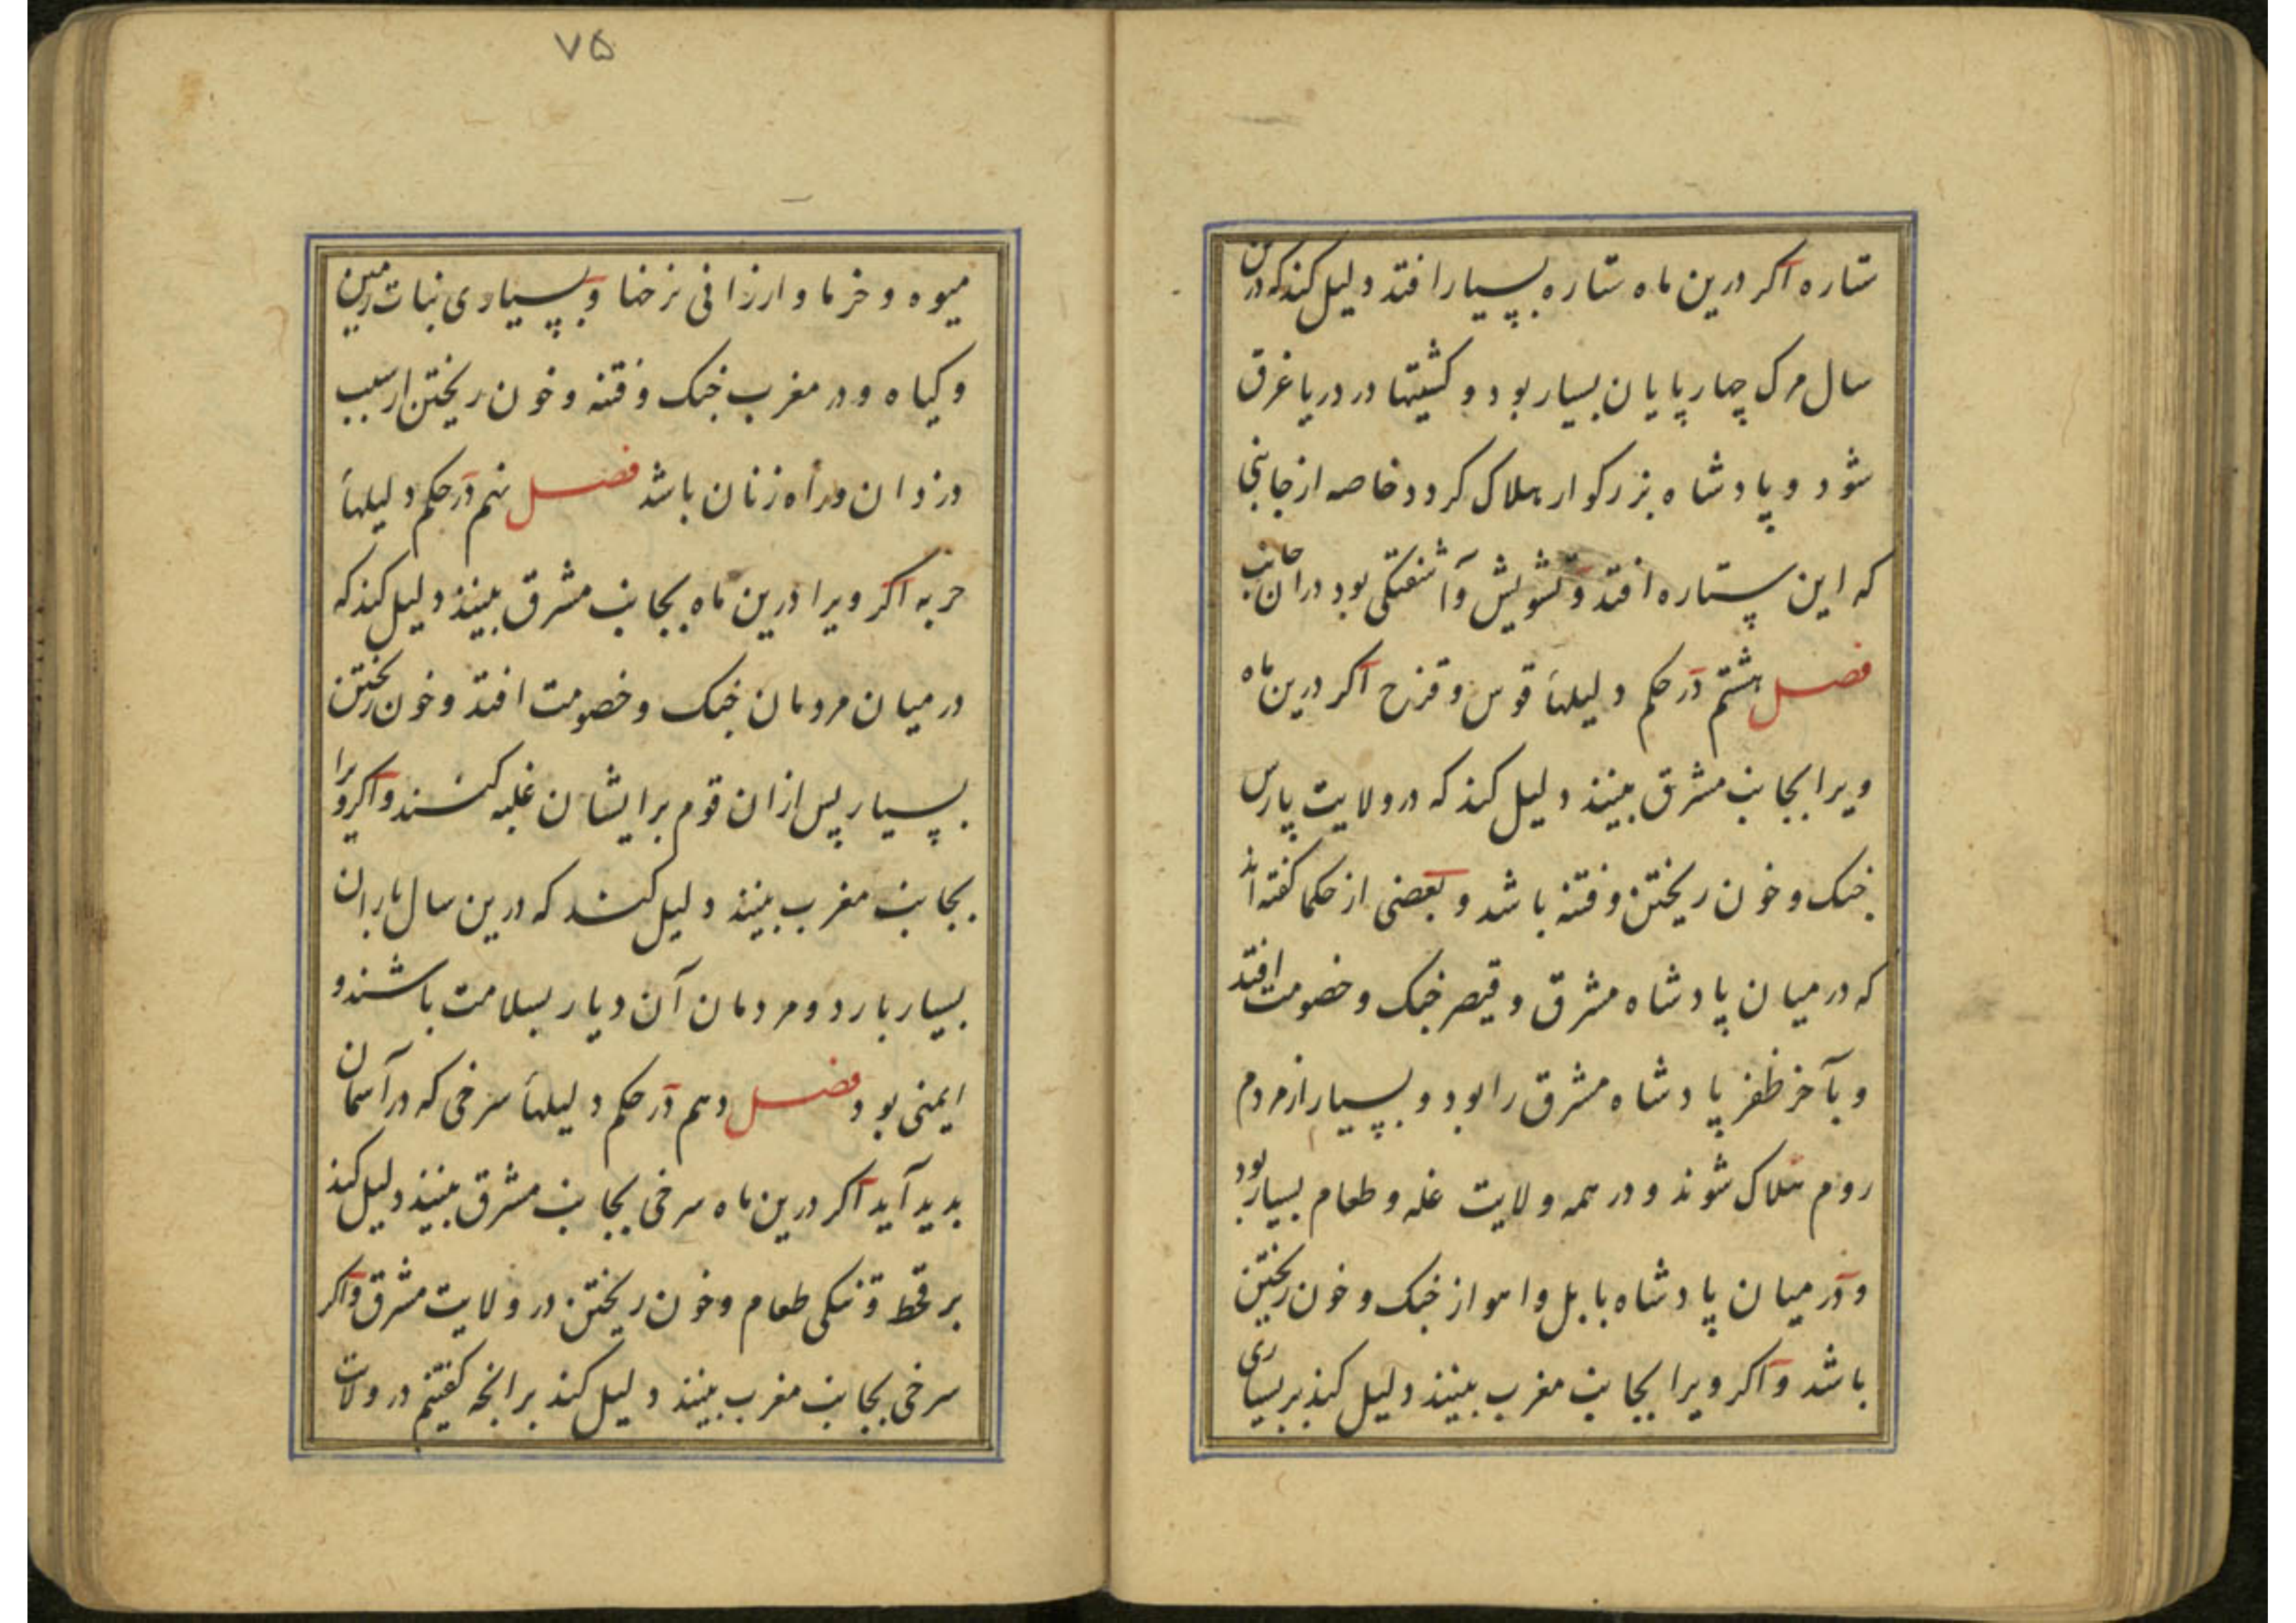 ستاره اکر درین ماه ستاره بسیار افتد دلیل کند که درین
سال مرک چهارپایان بسیار بود و کشتیها در دریا غرق
شود و پادشاه بزرکوار هلاک کردد خاصه از جانبی
که این ستاره افتد و تشویش و آشفتکی بود در آن جانب
فصل هشتم در حکم دلیلهاء قوس و قزح اکر درین ماه
ویرا بجانب مشرق بینند دلیل کند که در ولایت پارس
جنک و خون ریختن و فتنه باشد و بعضی از حکما کفته اند
که در میان پادشاه مشرق و قیصر جنک و خصومت افتد
و بآخر ظفر پادشاه مشرق را بود و بسیار از مردم
روم هلاک شوند و در همه ولایت غله و طعام بسیار بود
و در میان پادشاه بابل و اهواز جنک و خون ریختن
باشد و اکر ویرا بجانب مغرب بینند دلیل کند بر بسیاری
۷۵
میوه و خرما و ارزانی نرخها و بسیاری نبات زمین
و کیاه و در مغرب جنک و فتنه و خون ریختن از سبب
دزدان و راه زنان باشد فصل نهم در حکم دلیلهاء
حربه اکر ویرا درین ماه بجانب مشرق بینند دلیل کند که
در میان مردمان جنک و خصومت افتد و خون ریختن
بسیار پس ازان قوم برایشان غلبه کنند و اکر ویرا
بجانب مغرب بینند دلیل کند که درین سال باران
بسیار بارد و مردمان آن دیار بسلامت باشند و
ایمنی بود فصل دهم در حکم دلیلهاء سرخی که در آسمان
بدید آید اکر درین ماه سرخی بجانب مشرق بینند دلیل کند
بر قحط و تنکی طعام و خون ریختن در ولایت مشرق و اکر
سرخی بجانب مغرب بینند دلیل کند برانچه کفتیم در ولایت